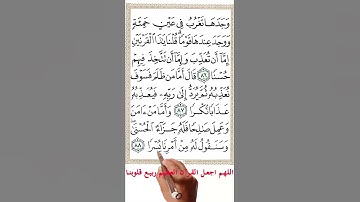 وَجَدَهَا تَغْرُبُ فِي عَيْنٍ حَمِئَةٍ
وَوَجَدَ عِندَهَا قَوْمًا قُلْنَا يَٰذَا ٱلْقَرْنَيْنِ
إِمَّآ أَن تُعَذِّبَ وَإِمَّآ أَن تَتَّخِذَ فِيهِمْ
حُسْنًا ٨٦ قَالَ أَمَّا مَن ظَلَمَ فَسَوْفَ
نُعَذِّبُهُۥ ثُمَّ يُرَدُّ إِلَىٰ رَبِّهِۦ فَيُعَذِّبُهُۥ
عَذَابًا نُّكْرًا ٨٧ وَأَمَّا مَنْ ءَامَنَ
وَعَمِلَ صَٰلِحًا فَلَهُۥ جَزَآءً ٱلْحُسْنَىٰ
وَسَنَقُولُ لَهُۥ مِنْ أَمْرِنَا يُسْرًا ٨٨
اللهم اجعل القرآن العظيم ربيع قلوبنا